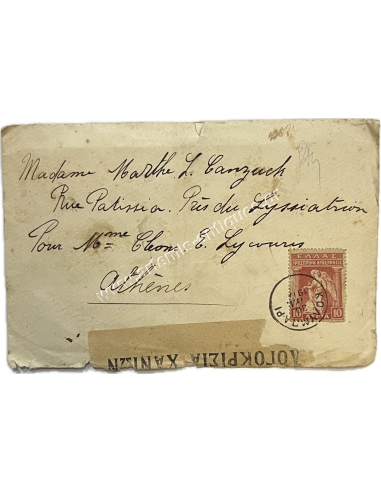 Madame Marthe L. Canzuch
Rue Patissia, Près du Lyssiatrion
Pour Mme Cleom. E. Lycouris
Athènes
ΕΛΛΑΣ
10 10
ΛΟΓΟΚΡΙΣΙΑ ΧΑΝΙΩΝ